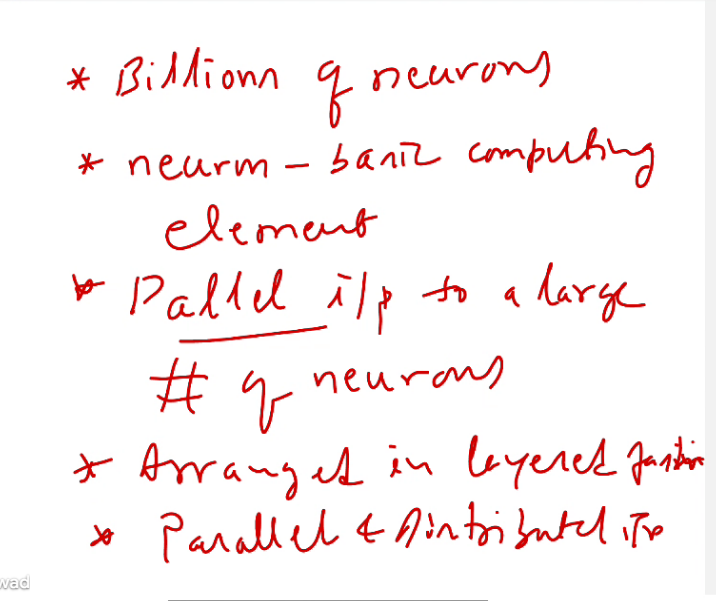 * Billions of neurons
* neuron - basic computing
element
* Pallel i/p to a large
# of neurons
* Arranged in layered fashion
* Parallel & Distributed
wad